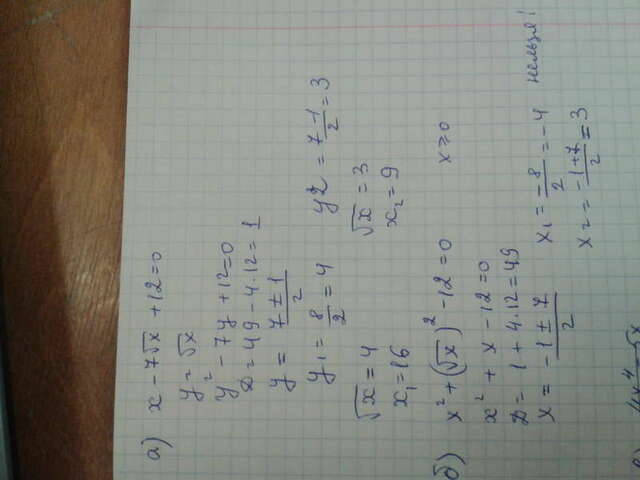 а) x - 7√x + 12 = 0
y = √x
y² - 7y + 12 = 0
D = 49 - 4·12 = 1
y = (7 ± 1)/2
y₁ = 8/2 = 4 y2 = (7-1)/2 = 3
√x = 4 √x = 3
x₁ = 16 x₂ = 9
б) x² + (√x)² - 12 = 0 x ≥ 0
x² + x - 12 = 0
D = 1 + 4·12 = 49
x = (-1 ± 7)/2 x₁ = -8/2 = -4 нельзя!
x₂ = (-1+7)/2 = 3